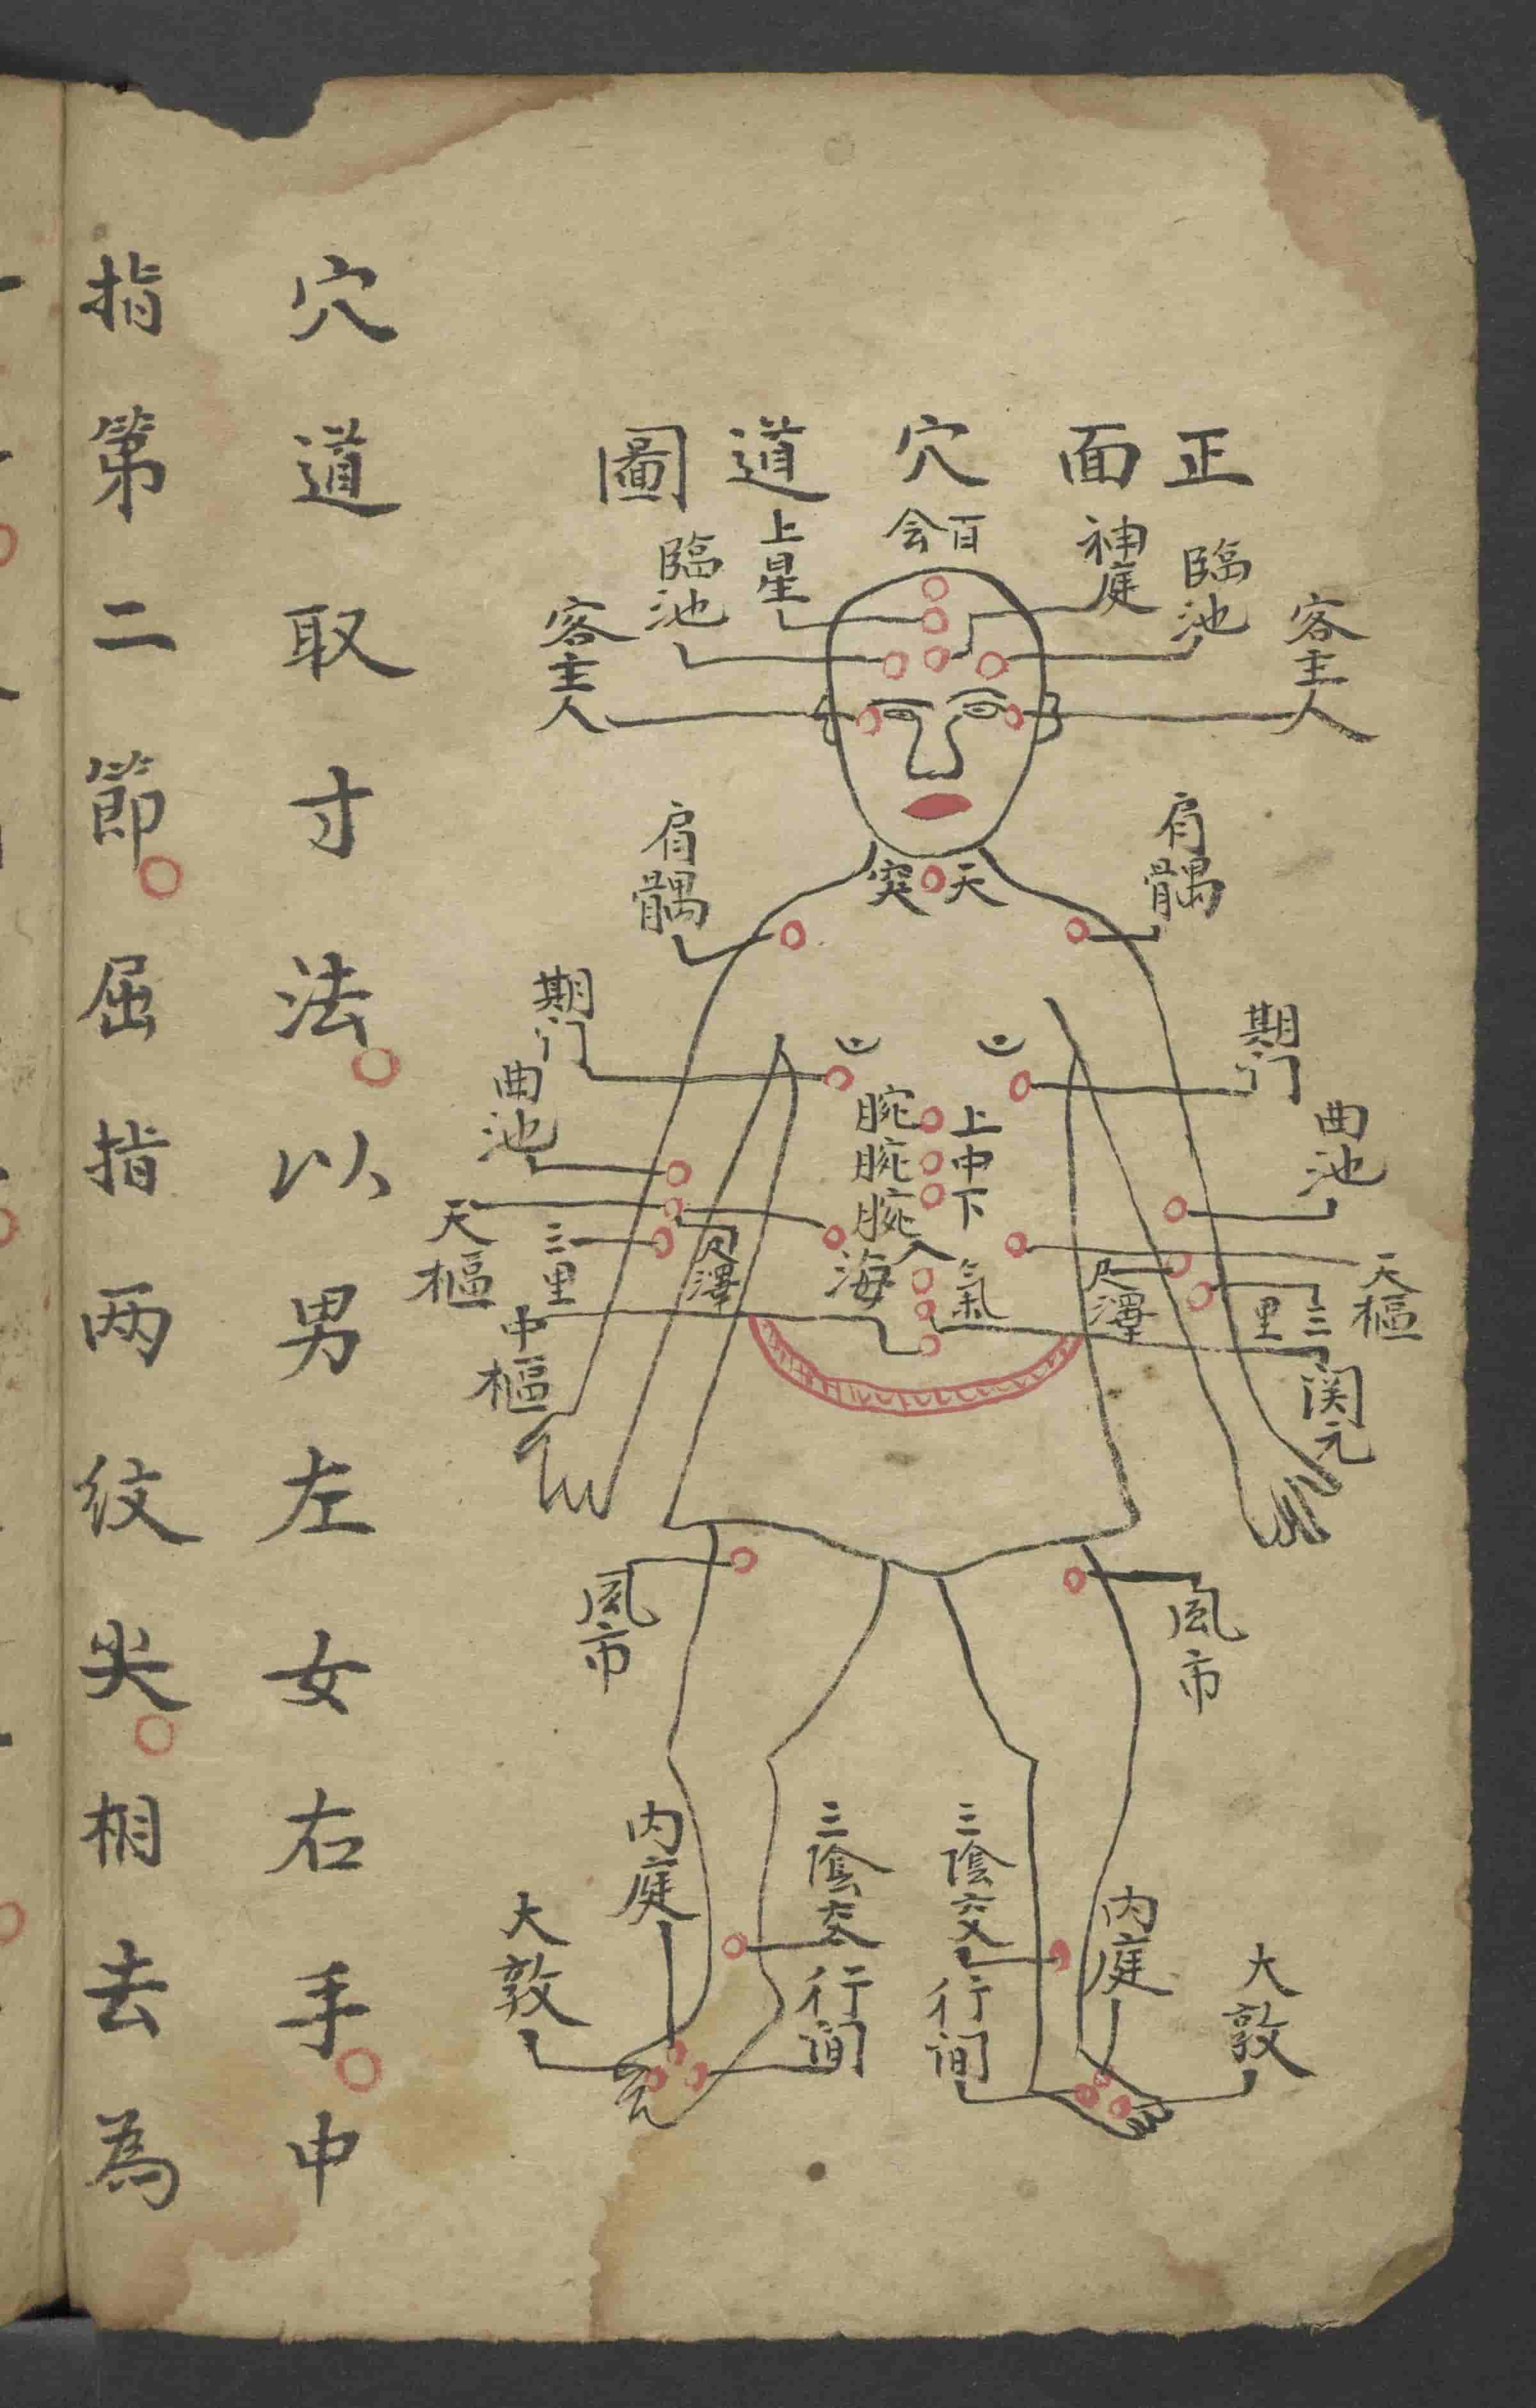 正面穴道圖
百会
神庭
上星
臨池
臨池
客主人
客主人
天突
肩髃
肩髃
期门
期门
曲池
曲池
上腕
中腕
下腕
氣海
天樞
天樞
三里
三里
尺澤
尺澤
中樞
関元
風市
風市
三陰交
三陰交
内庭
内庭
行间
行间
大敦
大敦
穴道取寸法以男左女右手中
指第二節屈指两纹尖相去為